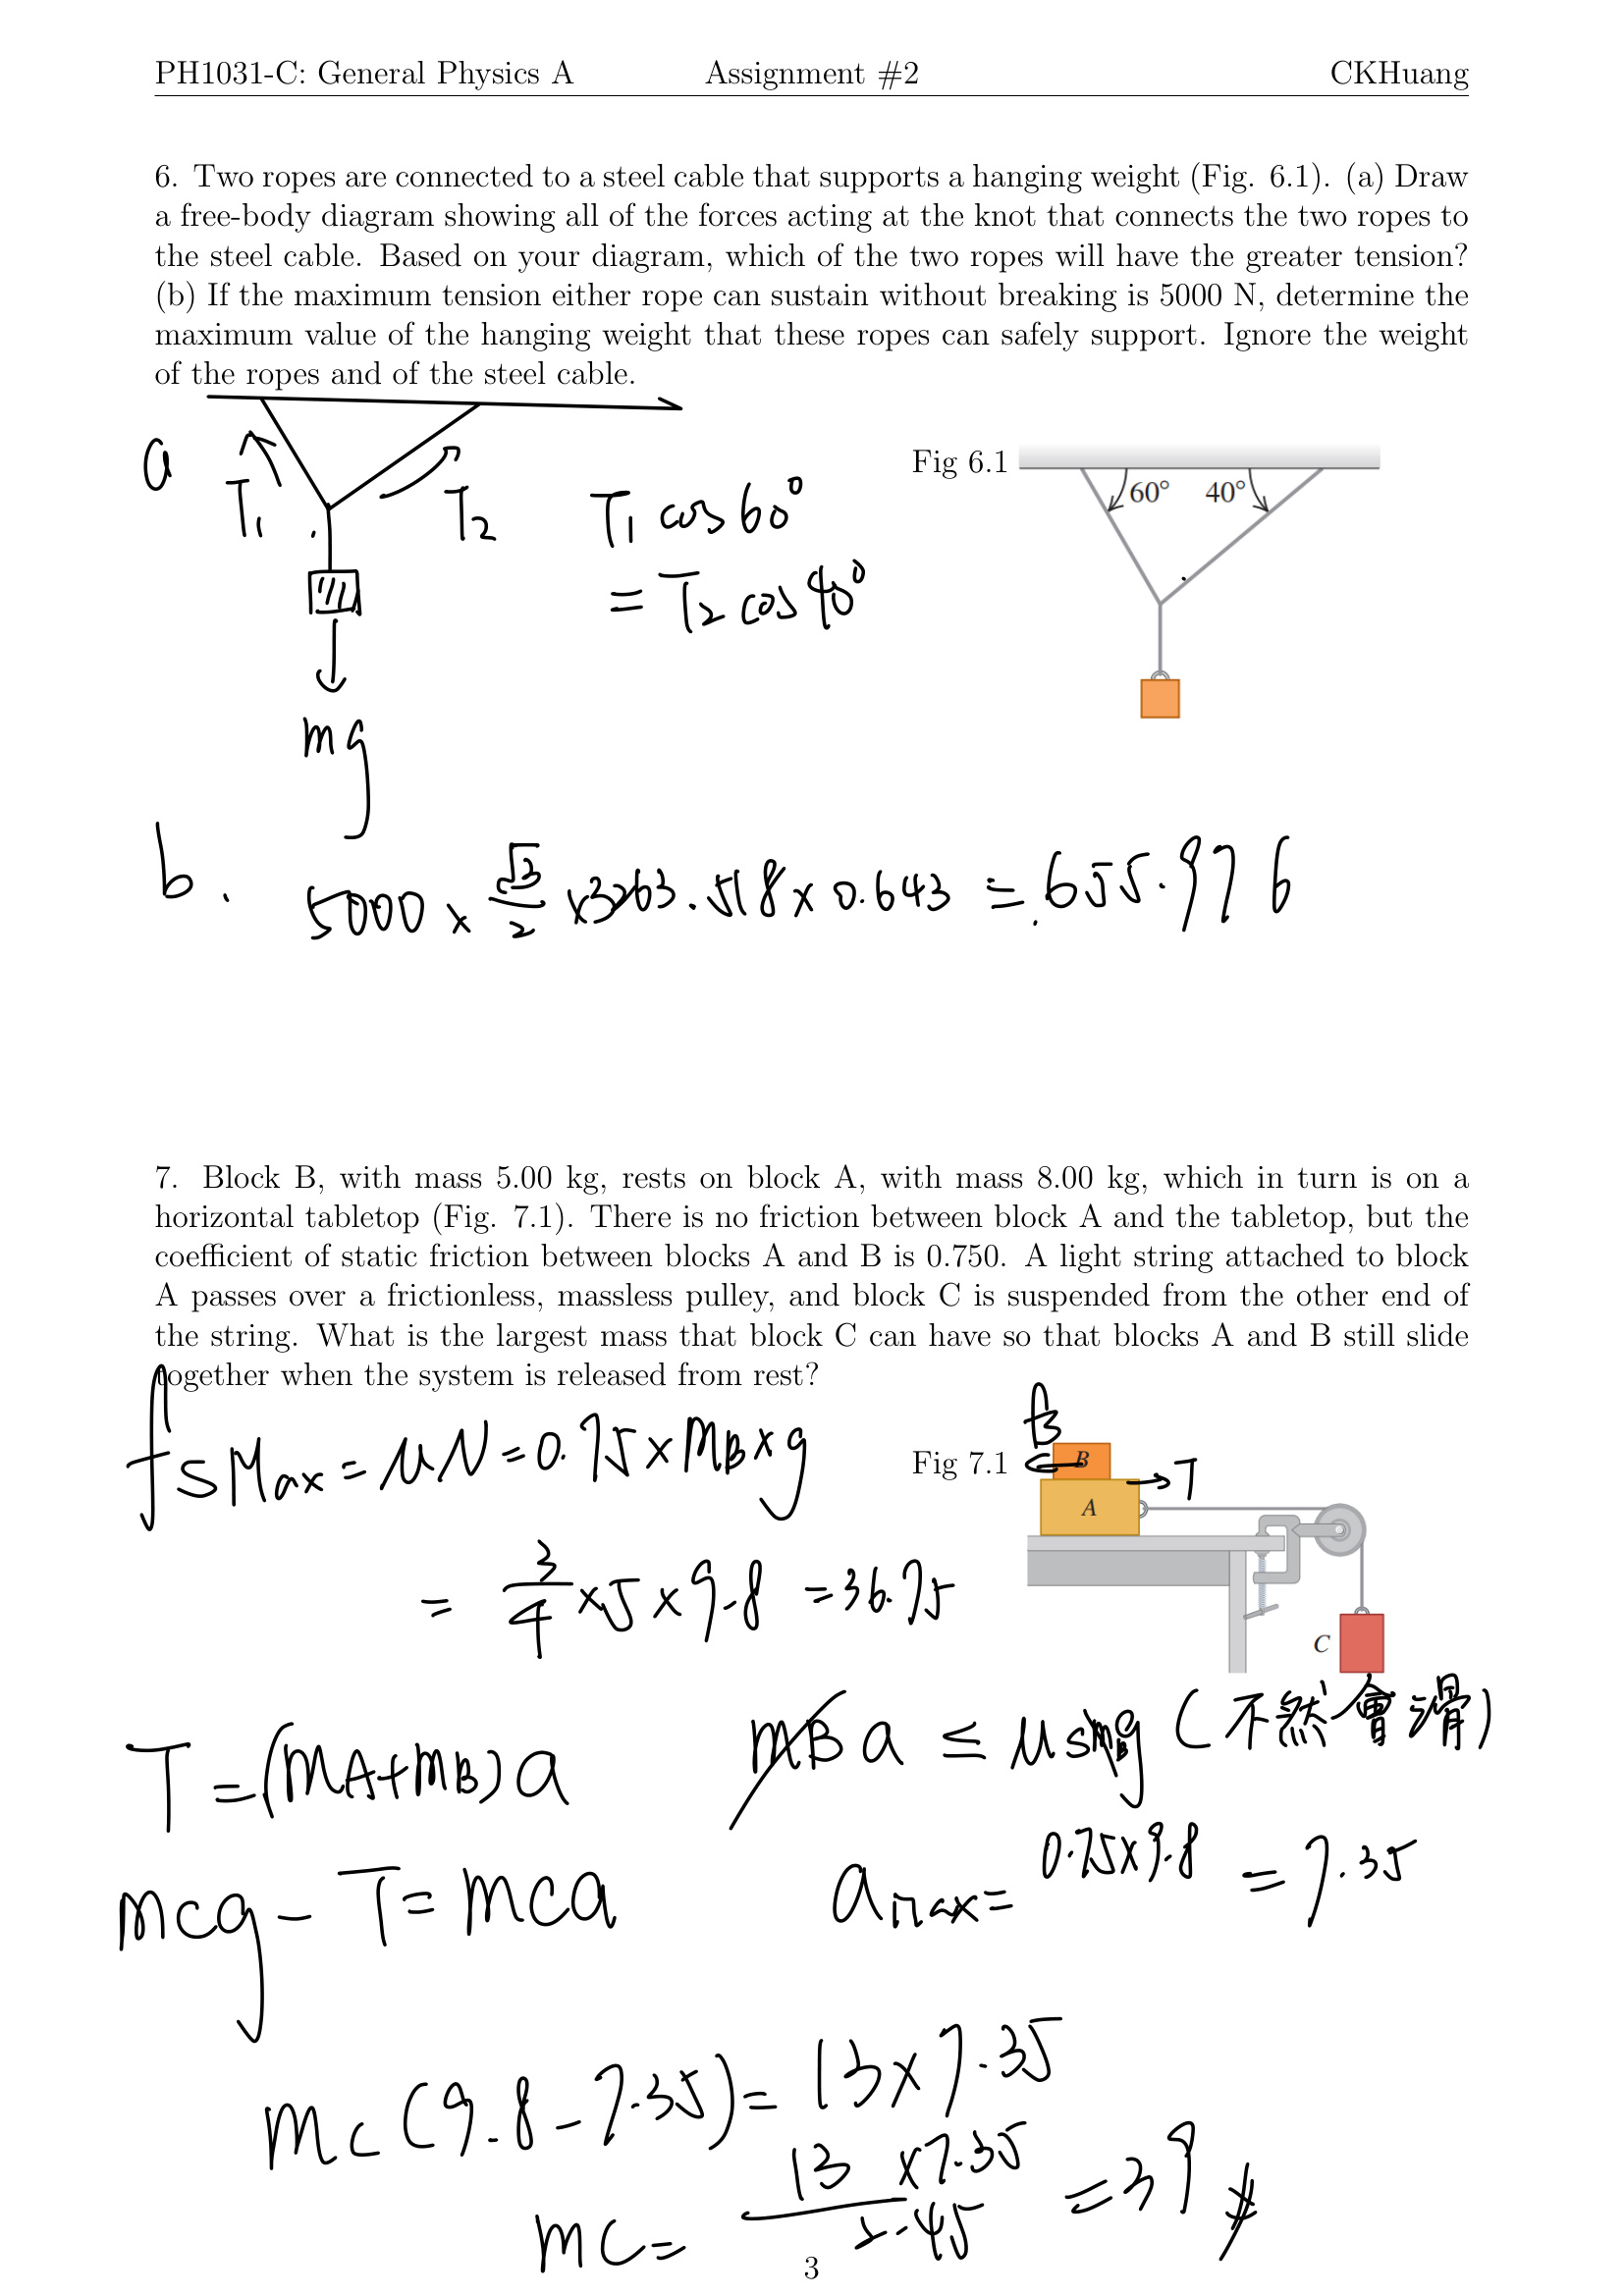 PH1031-C: General Physics A Assignment #2 CKHuang
6. Two ropes are connected to a steel cable that supports a hanging weight (Fig. 6.1). (a) Draw
a free-body diagram showing all of the forces acting at the knot that connects the two ropes to
the steel cable. Based on your diagram, which of the two ropes will have the greater tension?
(b) If the maximum tension either rope can sustain without breaking is 5000 N, determine the
maximum value of the hanging weight that these ropes can safely support. Ignore the weight
of the ropes and of the steel cable.
a
T1
T2
T1 cos60°
= T2 cos40°
mg
Fig 6.1
60° 40°
b. 5000 × √3/2 × 3263.518 × 0.643 = 655.976
7. Block B, with mass 5.00 kg, rests on block A, with mass 8.00 kg, which in turn is on a
horizontal tabletop (Fig. 7.1). There is no friction between block A and the tabletop, but the
coefficient of static friction between blocks A and B is 0.750. A light string attached to block
A passes over a frictionless, massless pulley, and block C is suspended from the other end of
the string. What is the largest mass that block C can have so that blocks A and B still slide
together when the system is released from rest?
fsMax = μN = 0.75 × MB × g
= 3/4 × 5 × 9.8 = 36.75
Fig 7.1
B
T
A
C
T = (MA+MB)a
mB a ≤ μs mB g (不然會滑)
mcg - T = mca
amax = 0.75×9.8 = 7.35
mc (9.8 - 7.35) = 13 × 7.35
mc = 13 × 7.35 / 2.45 = 39 #
3